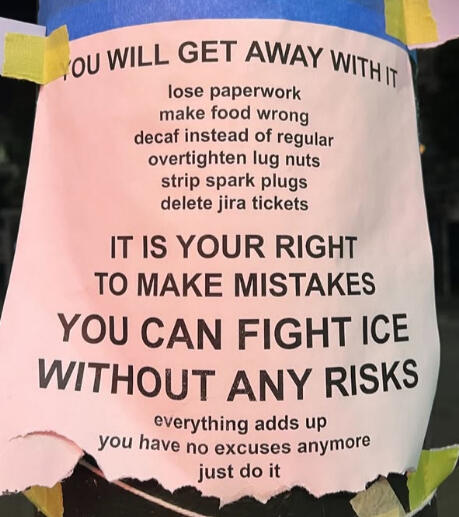 YOU WILL GET AWAY WITH IT
lose paperwork
make food wrong
decaf instead of regular
overtighten lug nuts
strip spark plugs
delete jira tickets
IT IS YOUR RIGHT
TO MAKE MISTAKES
YOU CAN FIGHT ICE
WITHOUT ANY RISKS
everything adds up
you have no excuses anymore
just do it